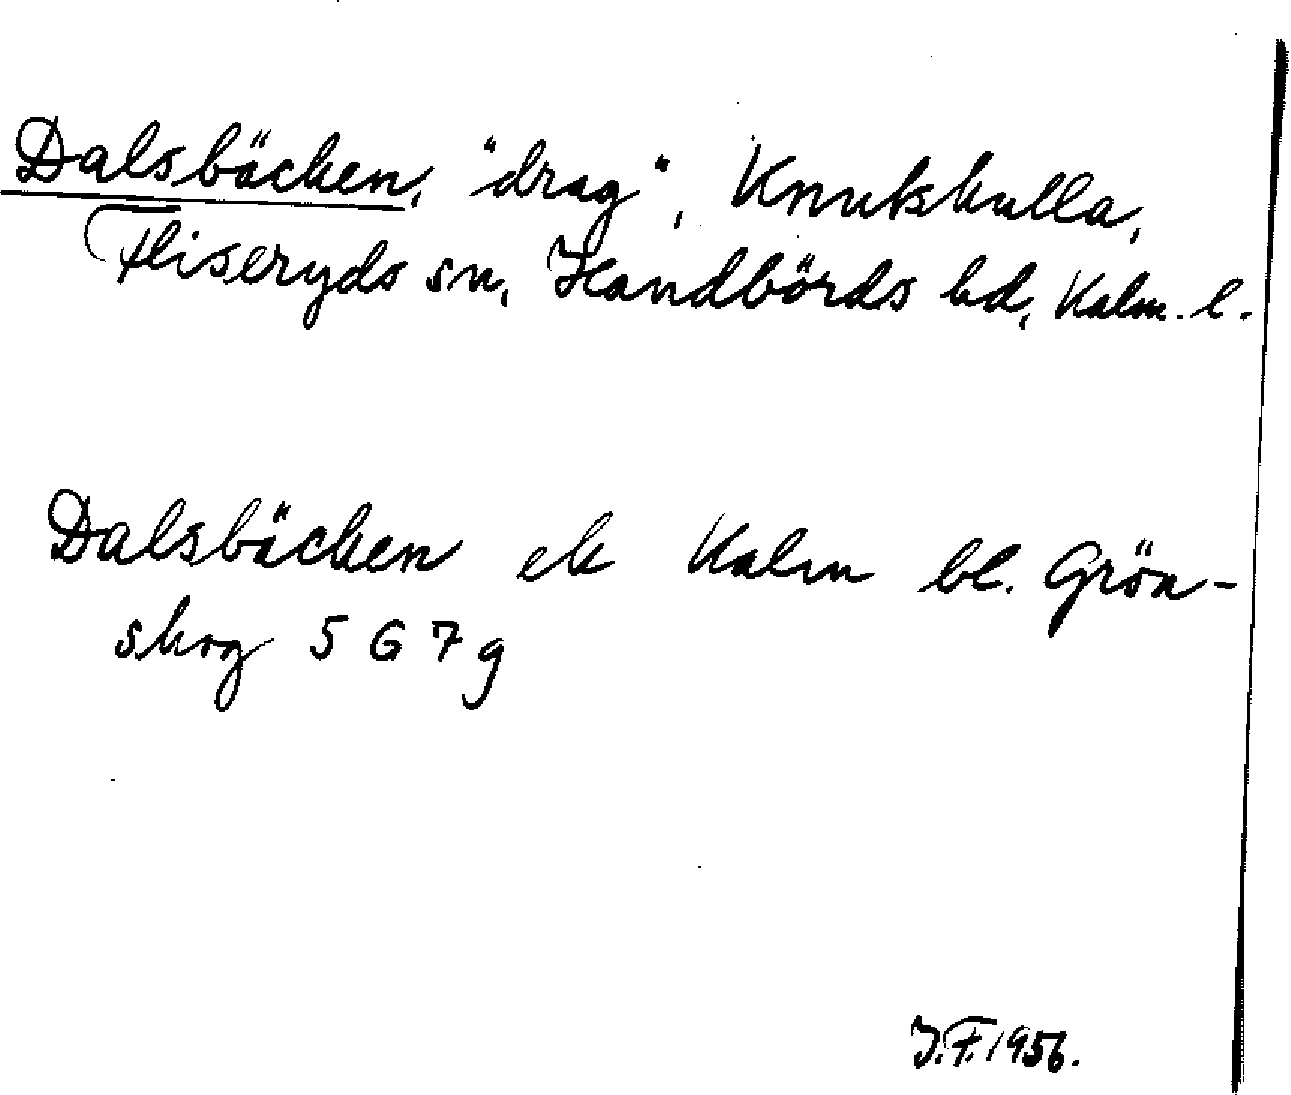 Dalsbäcken, "drag", Knutskulla,
Fliseryds sn, Handbörds hd, Kalm. l.
Dalsbäcken ek Kalm bl. Grön-
skog 5 G 7 g
J.F. 1956.